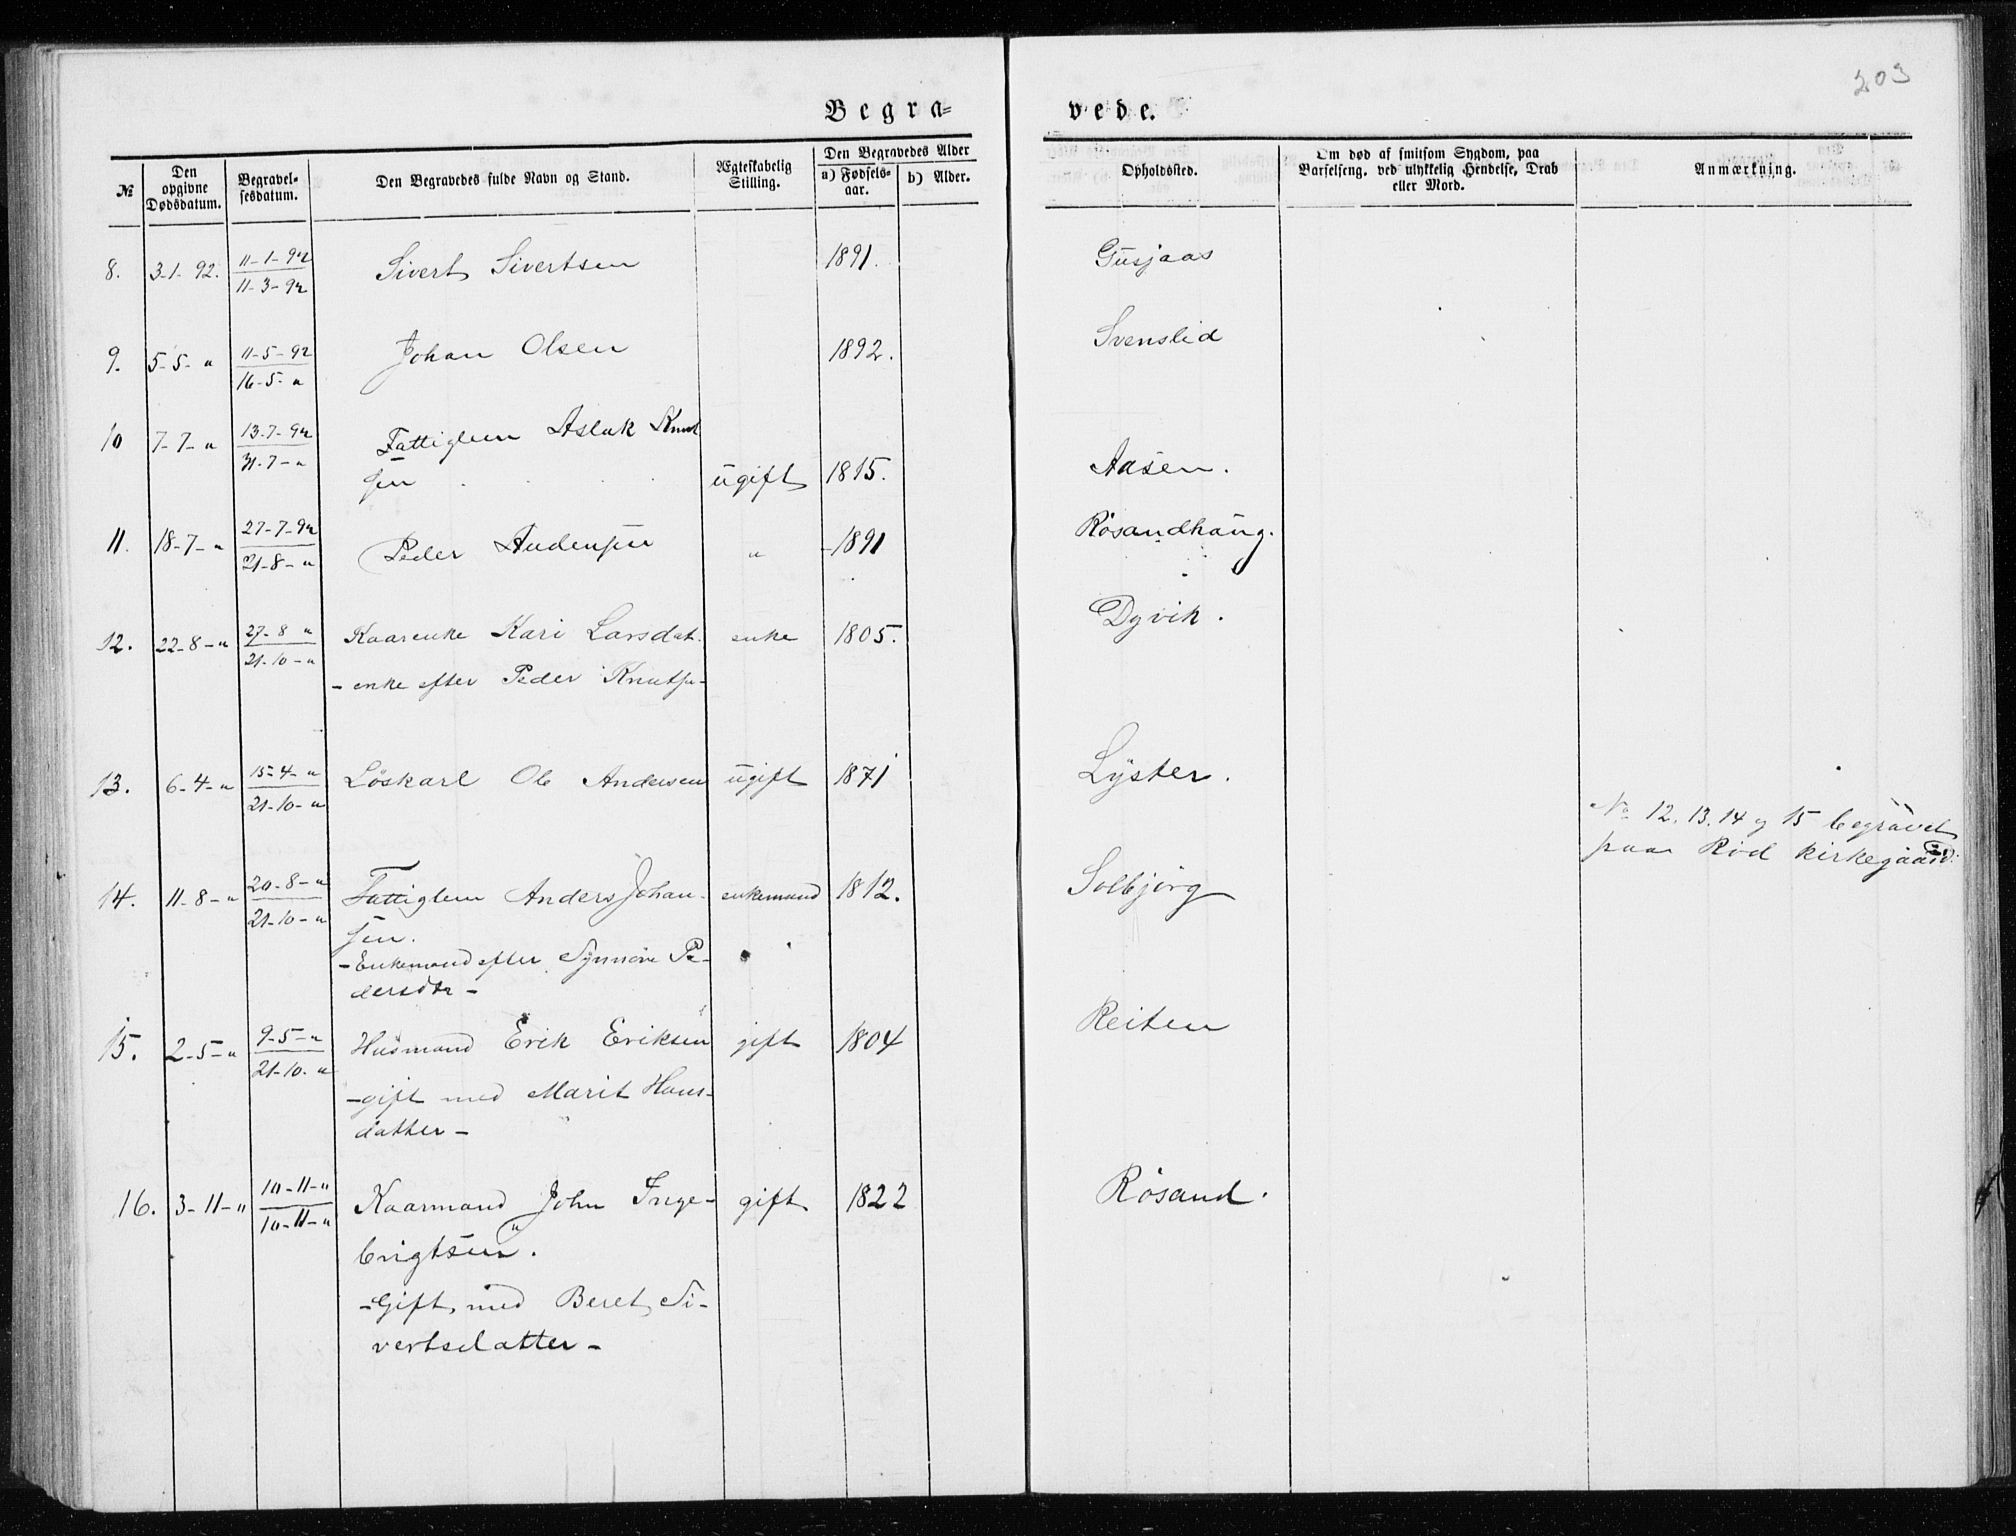 203
Begra=
vede.
№
Den opgivne Dødsdatum.
Begravel-sesdatum.
Den Begravedes fulde Navn og Stand.
Ægteskabelig Stilling.
Den Begravedes Alder
a) Fødsels-aar.
b) Alder.
Opholdssted.
Om død af smitsom Sygdom, paa Barselseng, ved ulykkelig Hendelse, Drab eller Mord.
Anmærkning.
8. 3-1- 92. 11-1-92 Sivert Sivertsen 1891. Gusjaas
11-3-92
9. 5-5- " 11-5-92 Johan Olsen 1892. Svenslid
16-5- "
10 7-7- " 13-7-92 Fattiglem Aslak Knut
31-7- " sen ugift 1815. Aasen.
11. 18-7- " 27-7-92 Peder Andersen " -1891 Rösandhaug.
21-8- "
12. 22-8- " 27-8 " Kaarenke Kari Larsdat. enke 1805. Dyvik.
21-10- "
- enke efter Peder Knutsn-
13. 6-4- " 15-4- " Löskarl Ole Andersen ugift 1871 Lyster.
21-10- "
No 12, 13, 14 og 15 begravet
paa Rød Kirkegaard.
14. 11-8- " 20-8- " Fattiglem Anders Johan- enkemand 1812. Solbjörg
21-10- "
sen.
- Enkemand efter Synnöve Pe-
dersdtr -
15. 2-5- " 9-5- " Husmand Erik Eriksen gift 1804 Reiten
21-10. "
- gift med Marit Hans-
datter -
16. 3-11- " 10-11- " Kaarmand John Inge- gift 1822 Rösand.
10-11- "
brigtsen.
- Gift med Beret Si-
vertsdatter -